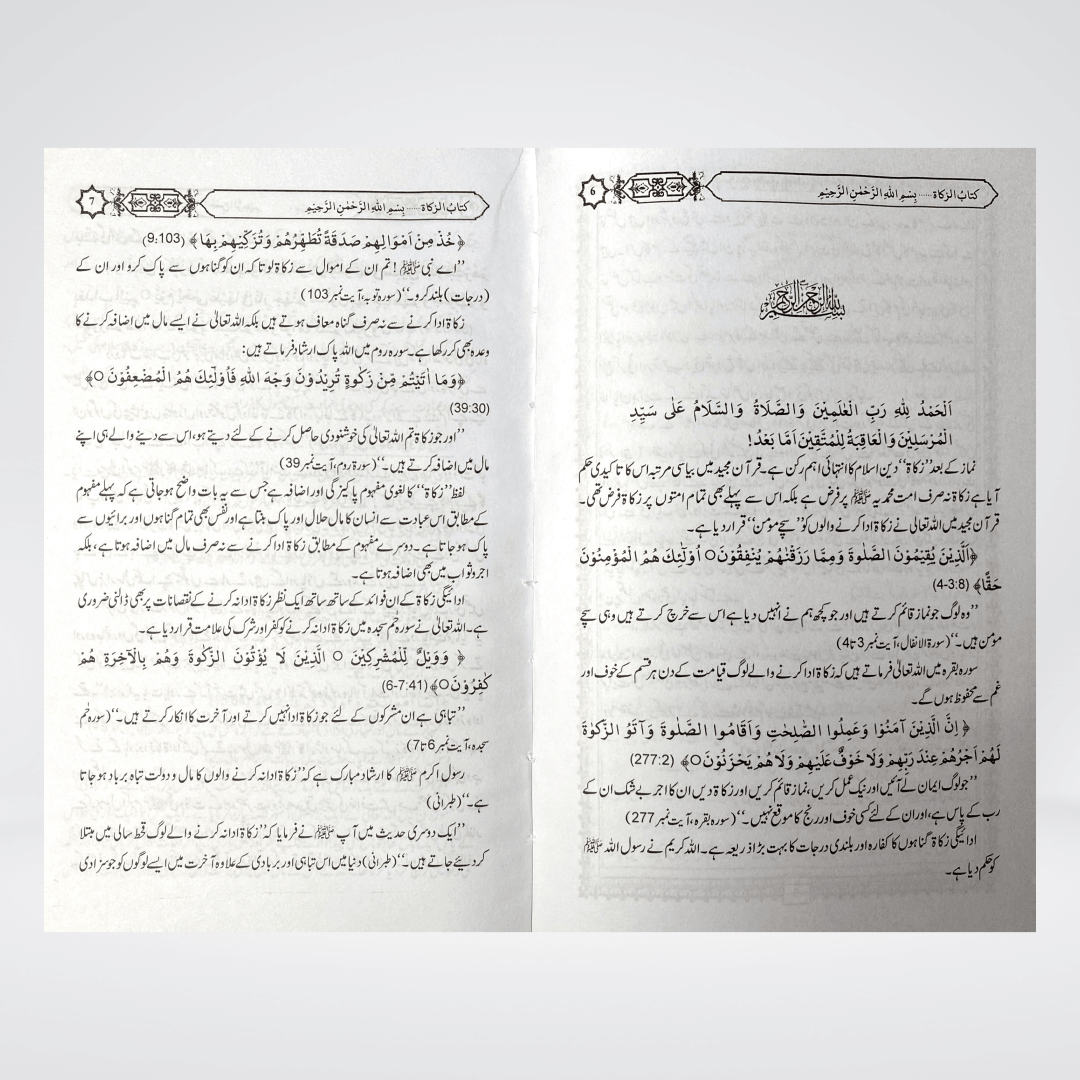 کتابُ الزکاة ...... بِسْمِ اللّٰهِ الرَّحْمٰنِ الرَّحِيْمِ
6
بِسْمِ اللهِ الرَّحْمٰنِ الرَّحِيْمِ
اَلْحَمْدُ لِلّٰهِ رَبِّ الْعٰلَمِيْنَ وَالصَّلَاةُ وَالسَّلَامُ عَلٰى سَيِّدِ
الْمُرْسَلِيْنَ وَالْعَاقِبَةُ لِلْمُتَّقِيْنَ اَمَّا بَعْدُ!
نماز کے بعد ’’زکاة‘‘ دین اسلام کا انتہائی اہم رکن ہے۔ قرآن مجید میں بیاسی مرتبہ اس کا تاکیدی حکم
آیا ہے زکاة نہ صرف امت محمدیہ ﷺ پر فرض ہے بلکہ اس سے پہلے بھی تمام امتوں پر زکاة فرض تھی۔
قرآن مجید میں اللہ تعالیٰ نے زکاة ادا کرنے والوں کو ’’سچے مؤمن‘‘ قرار دیا ہے۔
﴿اَلَّذِيْنَ يُقِيْمُوْنَ الصَّلٰوةَ وَمِمَّا رَزَقْنٰهُمْ يُنْفِقُوْنَ ○ اُوْلٰٓئِكَ هُمُ الْمُؤْمِنُوْنَ
حَقًّا﴾ (4-3:8)
’’وہ لوگ جو نماز قائم کرتے ہیں اور جو کچھ ہم نے انہیں دیا ہے اس سے خرچ کرتے ہیں وہی سچے
مؤمن ہیں۔‘‘ (سورة الانفال، آیت نمبر 3 تا 4)
سورہ بقرہ میں اللہ تعالیٰ فرماتے ہیں کہ زکاة ادا کرنے والے لوگ قیامت کے دن ہر قسم کے خوف اور
غم سے محفوظ ہوں گے۔
﴿ اِنَّ الَّذِيْنَ آمَنُوْا وَعَمِلُوا الصّٰلِحٰتِ وَاَقَامُوا الصَّلٰوةَ وَآتَوُ الزَّكٰوةَ
لَهُمْ اَجْرُهُمْ عِنْدَ رَبِّهِمْ وَلَا خَوْفٌ عَلَيْهِمْ وَلَا هُمْ يَحْزَنُوْنَ ○﴾ (277:2)
’’جو لوگ ایمان لے آئیں اور نیک عمل کریں، نماز قائم کریں اور زکاة دیں ان کا اجر بے شک ان کے
رب کے پاس ہے، اور ان کے لئے کسی خوف اور رنج کا موقع نہیں۔‘‘ (سورہ بقرہ، آیت نمبر 277)
ادائیگی زکاة گناہوں کا کفارہ اور بلندی درجات کا بہت بڑا ذریعہ ہے۔ اللہ کریم نے رسول اللہ ﷺ
کو حکم دیا ہے۔
کتابُ الزکاة ...... بِسْمِ اللّٰهِ الرَّحْمٰنِ الرَّحِيْمِ
7
﴿خُذْ مِنْ اَمْوَالِهِمْ صَدَقَةً تُطَهِّرُهُمْ وَتُزَكِّيْهِمْ بِهَا﴾ (9:103)
’’اے نبی ﷺ ! تم ان کے اموال سے زکاة لو تا کہ ان کو گناہوں سے پاک کرو اور ان کے
(درجات) بلند کرو۔‘‘ (سورہ توبہ، آیت نمبر 103)
زکاة ادا کرنے سے نہ صرف گناہ معاف ہوتے ہیں بلکہ اللہ تعالیٰ نے ایسے مال میں اضافہ کرنے کا
وعدہ بھی کر رکھا ہے۔ سورہ روم میں اللہ پاک ارشاد فرماتے ہیں:
﴿وَمَا اٰتَيْتُمْ مِّنْ زَكٰوةٍ تُرِيْدُوْنَ وَجْهَ اللّٰهِ فَاُوْلٰٓئِكَ هُمُ الْمُضْعِفُوْنَ ○﴾
(39:30)
’’اور جو زکاة تم اللہ تعالیٰ کی خوشنودی حاصل کرنے کے لئے دیتے ہو، اس سے دینے والے ہی اپنے
مال میں اضافہ کرتے ہیں۔‘‘ (سورة روم، آیت نمبر 39)
لفظ ’’زکاة‘‘ کا لغوی مفہوم پاکیزگی اور اضافہ ہے جس سے یہ بات واضح ہو جاتی ہے کہ پہلے مفہوم
کے مطابق اس عبادت سے انسان کا مال حلال اور پاک بنتا ہے اور نفس بھی تمام گناہوں اور برائیوں سے
پاک ہو جاتا ہے۔ دوسرے مفہوم کے مطابق زکاة ادا کرنے سے نہ صرف مال میں اضافہ ہوتا ہے، بلکہ
اجر و ثواب میں بھی اضافہ ہوتا ہے۔
ادائیگی زکاة کے ان فوائد کے ساتھ ساتھ ایک نظر زکاة ادا نہ کرنے کے نقصانات پر بھی ڈالنی ضروری
ہے۔ اللہ تعالیٰ نے سورہ حٰم سجدہ میں زکاة ادا نہ کرنے کو کفر اور شرک کی علامت قرار دیا ہے۔
﴿ وَوَيْلٌ لِّلْمُشْرِكِيْنَ ○ الَّذِيْنَ لَا يُؤْتُوْنَ الزَّكٰوةَ وَهُمْ بِالْآخِرَةِ هُمْ
كٰفِرُوْنَ ○﴾ (6-7:41)
’’تباہی ہے ان مشرکوں کے لئے جو زکاة ادا نہیں کرتے اور آخرت کا انکار کرتے ہیں۔‘‘ (سورہ حٰم
سجدہ، آیت نمبر 6 تا 7)
رسول اکرم ﷺ کا ارشاد مبارک ہے کہ ’’زکاة ادا نہ کرنے والوں کا مال و دولت تباہ برباد ہو جاتا
ہے۔‘‘ (طبرانی)
’’ایک دوسری حدیث میں آپ ﷺ نے فرمایا کہ ’’زکاة ادا نہ کرنے والے لوگ قحط سالی میں مبتلا
کر دیئے جاتے ہیں۔‘‘ (طبرانی) دنیا میں اس تباہی اور بربادی کے علاوہ آخرت میں ایسے لوگوں کو جو سزا دی